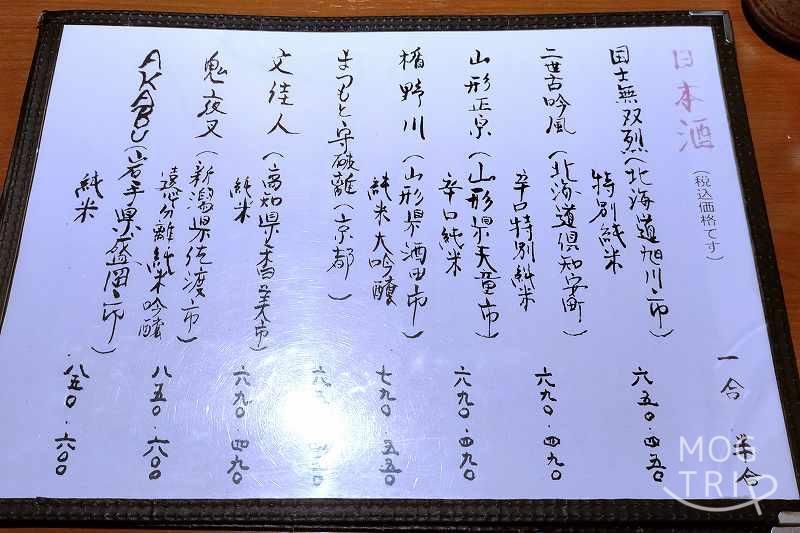 日本酒
(税込価格です)
一合 半合
国士無双烈(北海道旭川市)
特別純米
六五〇.四五〇
二世古吟風(北海道倶知安町)
辛口特別純米
六九〇.四九〇
山形正宗(山形県天童市)
辛口純米
六九〇.四九〇
楯野川(山形県酒田市)
純米大吟醸
七九〇.五五〇
まつもと守破離(京都)
文佳人(高知県香美市)
純米
六九〇.四九〇
鬼夜叉(新潟県佐渡市)
遠心分離純米吟醸
八五〇.六〇〇
AKABU(岩手県盛岡市)
純米
八五〇.六〇〇
MOG
TRIP